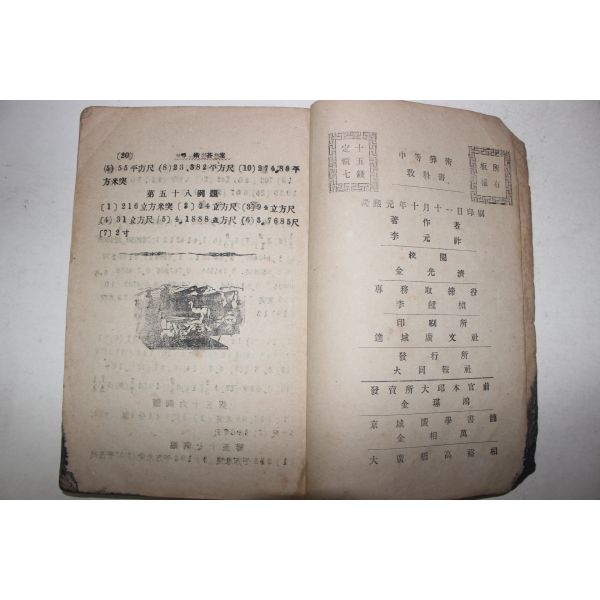 (20)
(5) 55平方尺 (8) 23,382平方尺 (10) 274,88平
方米突
第五十八例題
(1) 216立方米突 (2) 24立方尺 (3) 94立方尺
(4) 31立方尺 (5) 4.1888立方尺 (6) 3,7685尺
(7) 2寸
十五錢
定價七
中等算術
教科書
所有
板權
隆熙元年十月十一日印刷
著作者
李元祚
校閱
金光濟
專務取締役
李鍾楨
印刷所
達城廣文社
發行所
大同報社
發賣所大邱本官前
金璂鴻
京城廣學書舖
金相萬